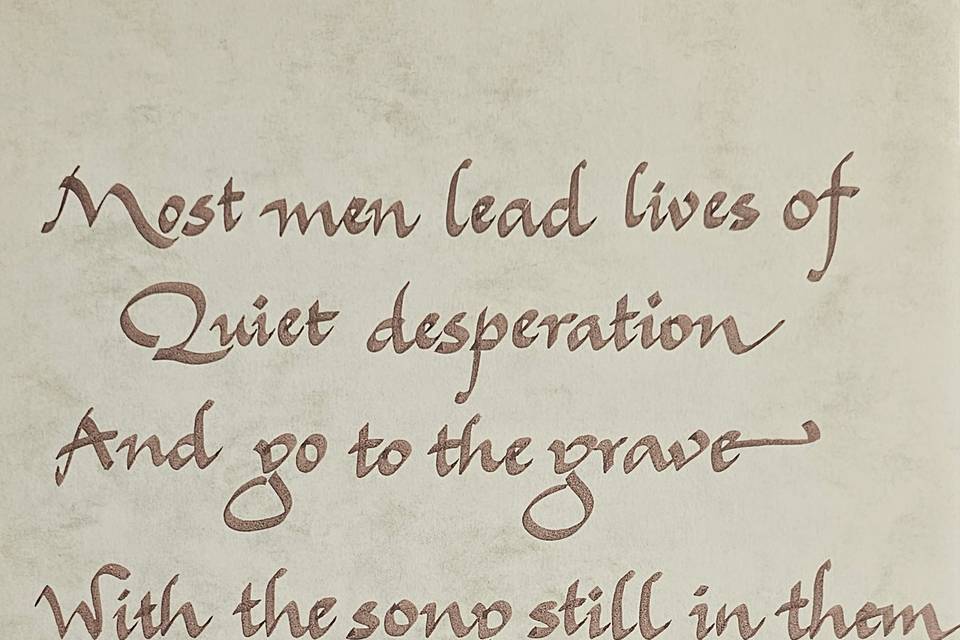 Most men lead lives of
Quiet desperation
And go to the grave
With the song still in them